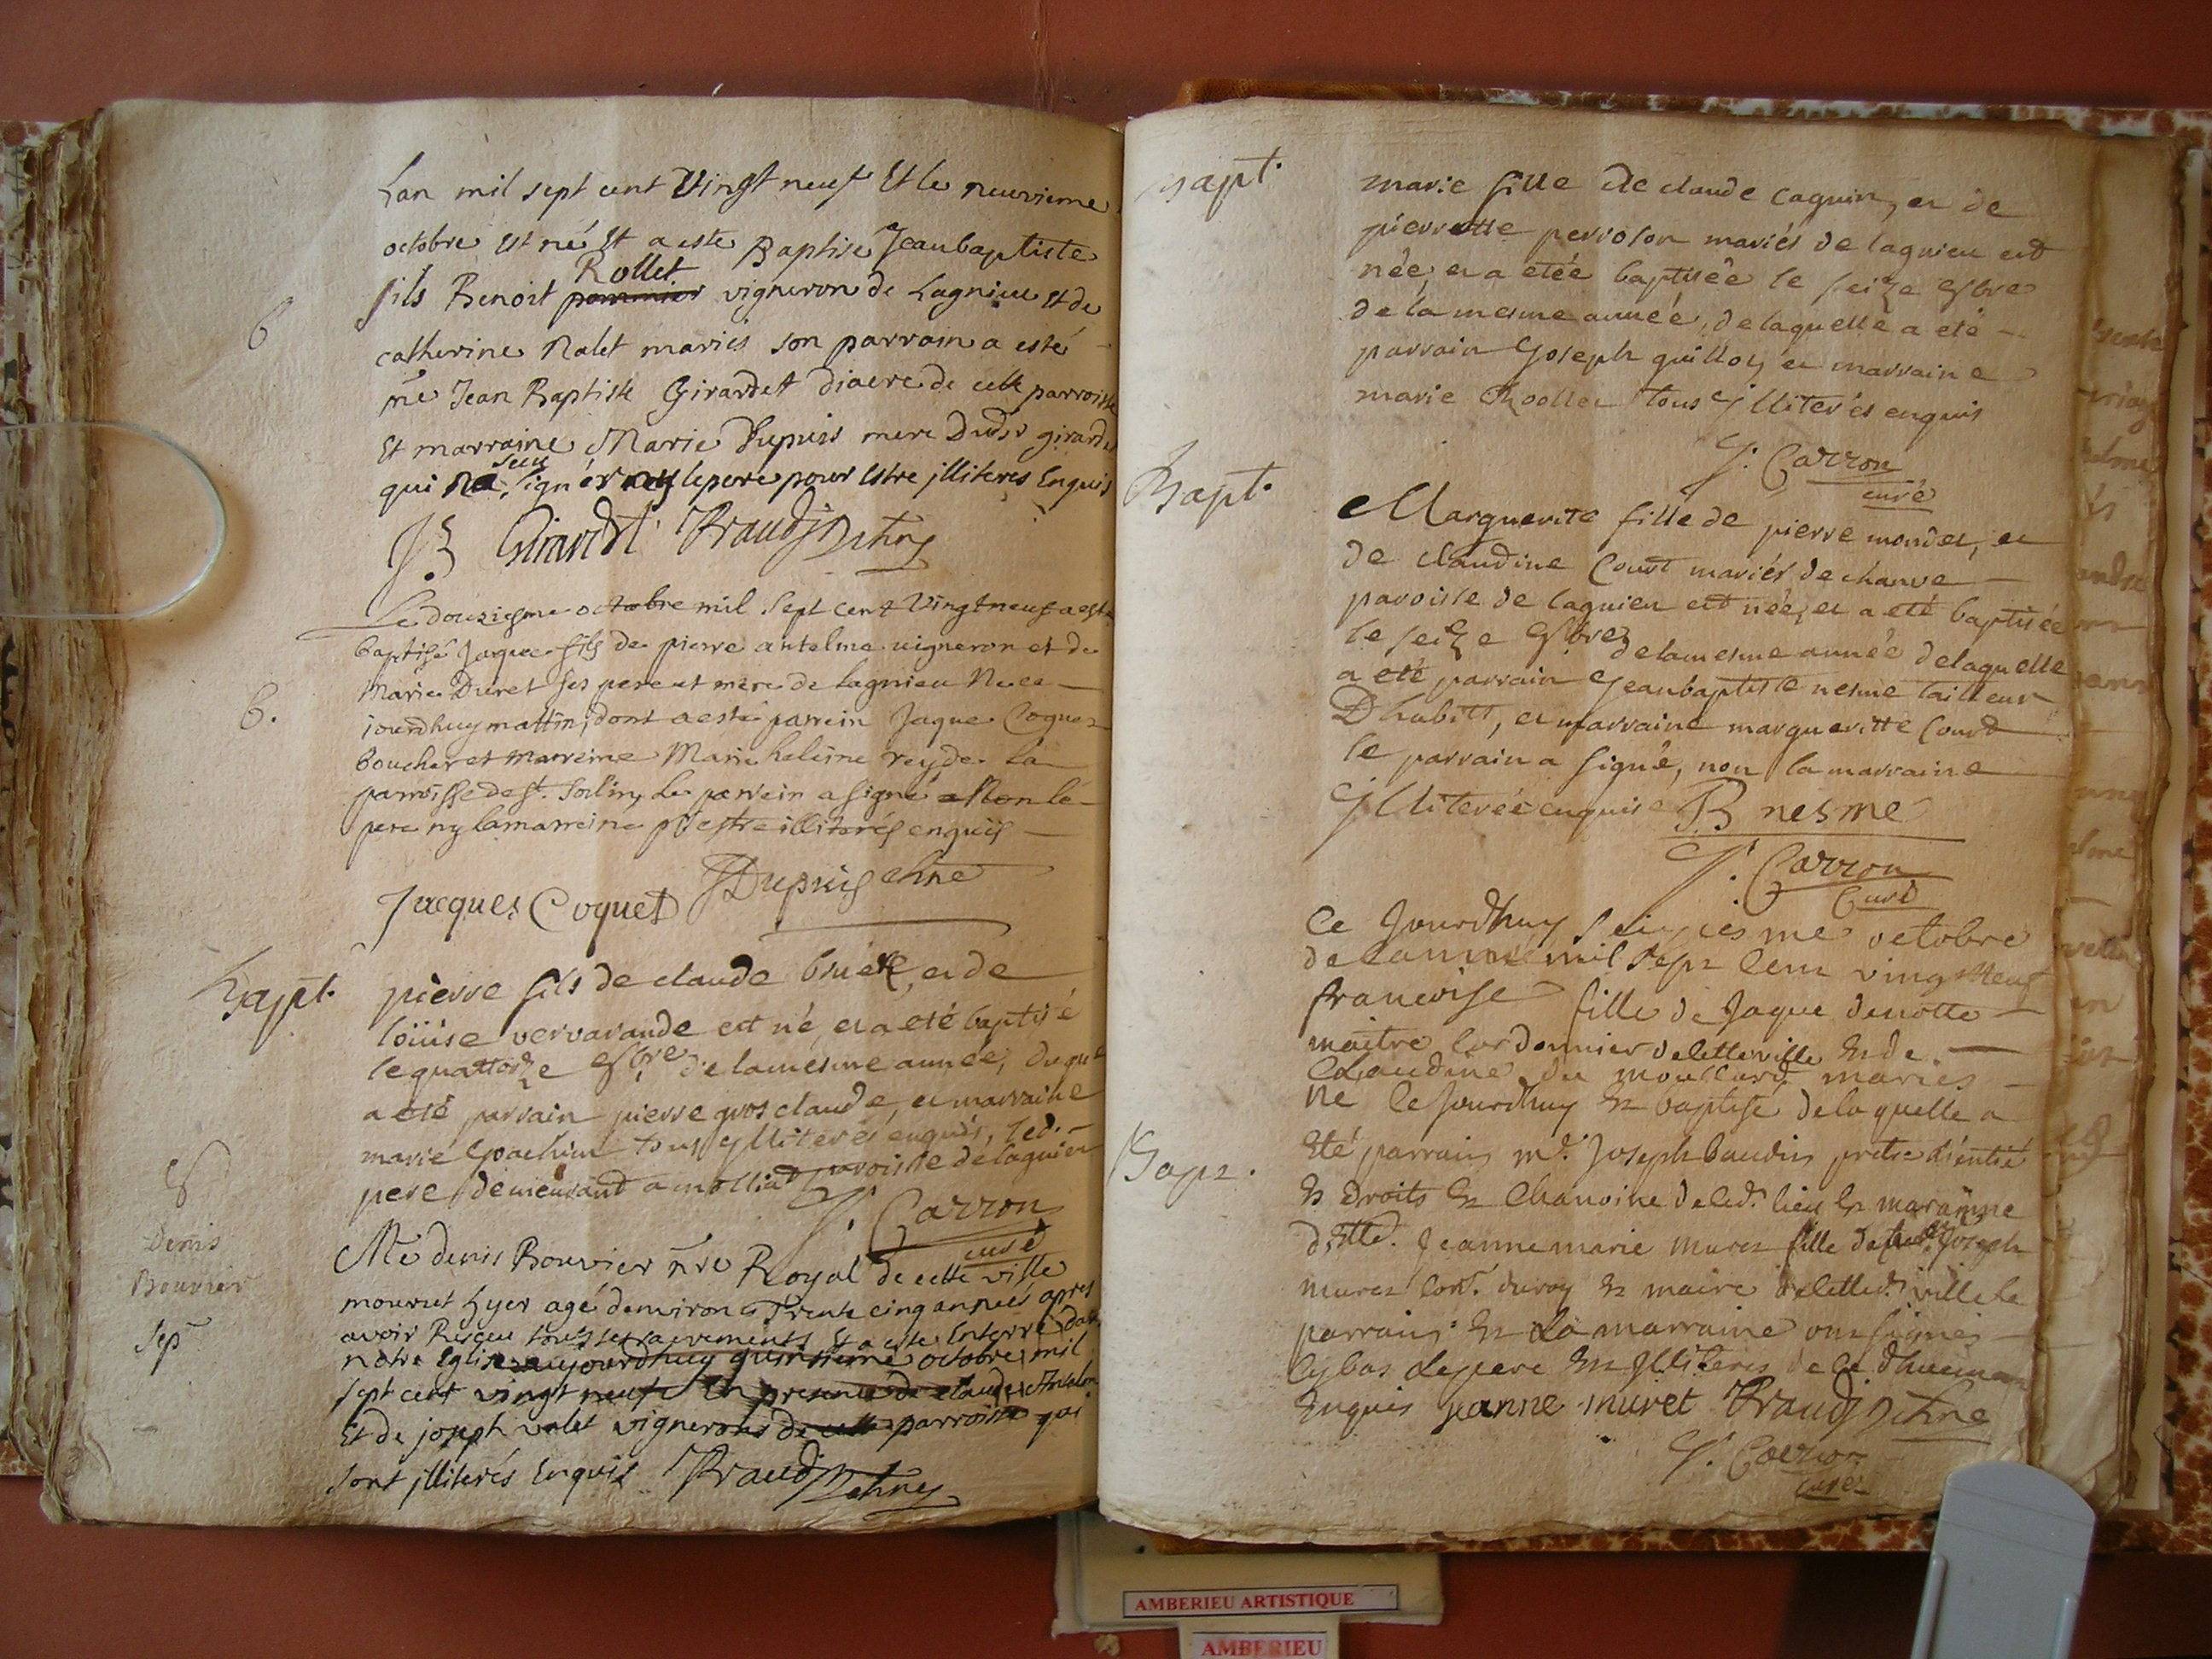 Lan mil sept cent Vingt neuf Et le neuvieme
octobre Est né Et a este Baptisé Jeanbaptiste
Rollet
fils Benoit pommier vigneron de Lagnieu Et de
6
catherine Nalet mariés son parrain a esté
me Jean Baptiste Girardet diacre de cette parroisse
Et marraine Marie Dupuis mere Dudsr girardet
sceu
qui Na signér ny lepere pour Estre jlliteres Enquis
J B Girardet Braudj
Le douziesme octobre mil Sept cent Vingt neuf a esté
baptisé Jaque fils de pierre antelme vigneron et de
Marie Duret ses pere et mere de lagnieu Nee ce
6.
jourdhuy mattin, dont a esté parrein Jaque Coquet
boucher et marreine Marie heleine rey de la
parroisse de st. Sorlin, Le parrein a signé et non le
pere ny lamarreine pr estre illiterés enquis
Jacques Coquet Dupuis
Bapt.
pierre fils de claude , et de
loüise vervarande est né, et a eté baptisé
le quattorze 8bre de lamesme année, duquel
a eté parrain pierre gros claude, et marraine
marie Joachim tous jlliterés enquis, led.
pere demeurant a molliat paroisse de lagnieu
J. Carron
curé
8
Denis
Bouvier
Sep
Me denis Bouvier nre Royal de cette ville
mourut hyer agé denviron Trente cinq années apres
avoir Reçeu tous les sacrements Et a esté Enterré dans
notre Eglise aujourdhuy quinsieme octobre mil
sept cent vingt neuf En presence de claude
Et de joseph valet vignerons de cette parroisse qui
sont jlliterés Enquis Braudj
Bapt.
marie fille de claude caguin, et de
pierrette perroson mariés de lagnieu est
née, et a etée baptisée le seize 8bre
de la mesme année, de laquelle a eté
parrain Joseph guillot, et marraine
marie Roollet tous jlliterés enquis
J. Carron
curé
Bapt.
Marguerite fille de pierre mondet, et
de claudine Court mariés de chanve
paroisse de lagnieu est née, et a eté baptisée
le seize 8bre de lamesme année de laquelle
a eté parrain Jeanbaptiste nesme tailleur
Dhabits, et marraine margueritte Court
le parrain a signé, non la marraine
jlliterée enquise B nesme
J. Carron
Curé
Ce Jourdhuy seiziesme octobre
de lannee mil sept Cent vingt Neuf
francoise fille de Jaque denotte
maitre Cordonnier de cette ville Et de
Claudine du moullard mariés
ne ce Jourdhuy Et baptisé de laquelle a
Bapt.
Eté parrain mr. Joseph baudin pretre
Es droits Et Chanoine de led. lieu Et maraînne
dlle. Jeanne marie muret fille de Joseph
muret . du roy Et maire de cetted. ville Le
parrain Et La marraine ont signés
Cybas Lepere Est jlliteres de ce dhuement
Enquis jeanne muret Braudj
J. Carron
curé
AMBERIEU ARTISTIQUE
AMBERIEU